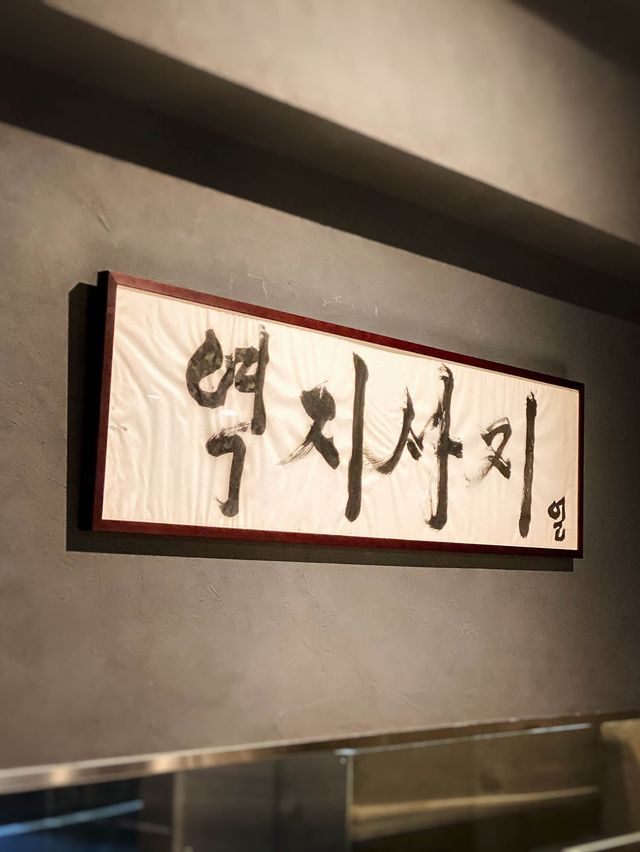 역지사지